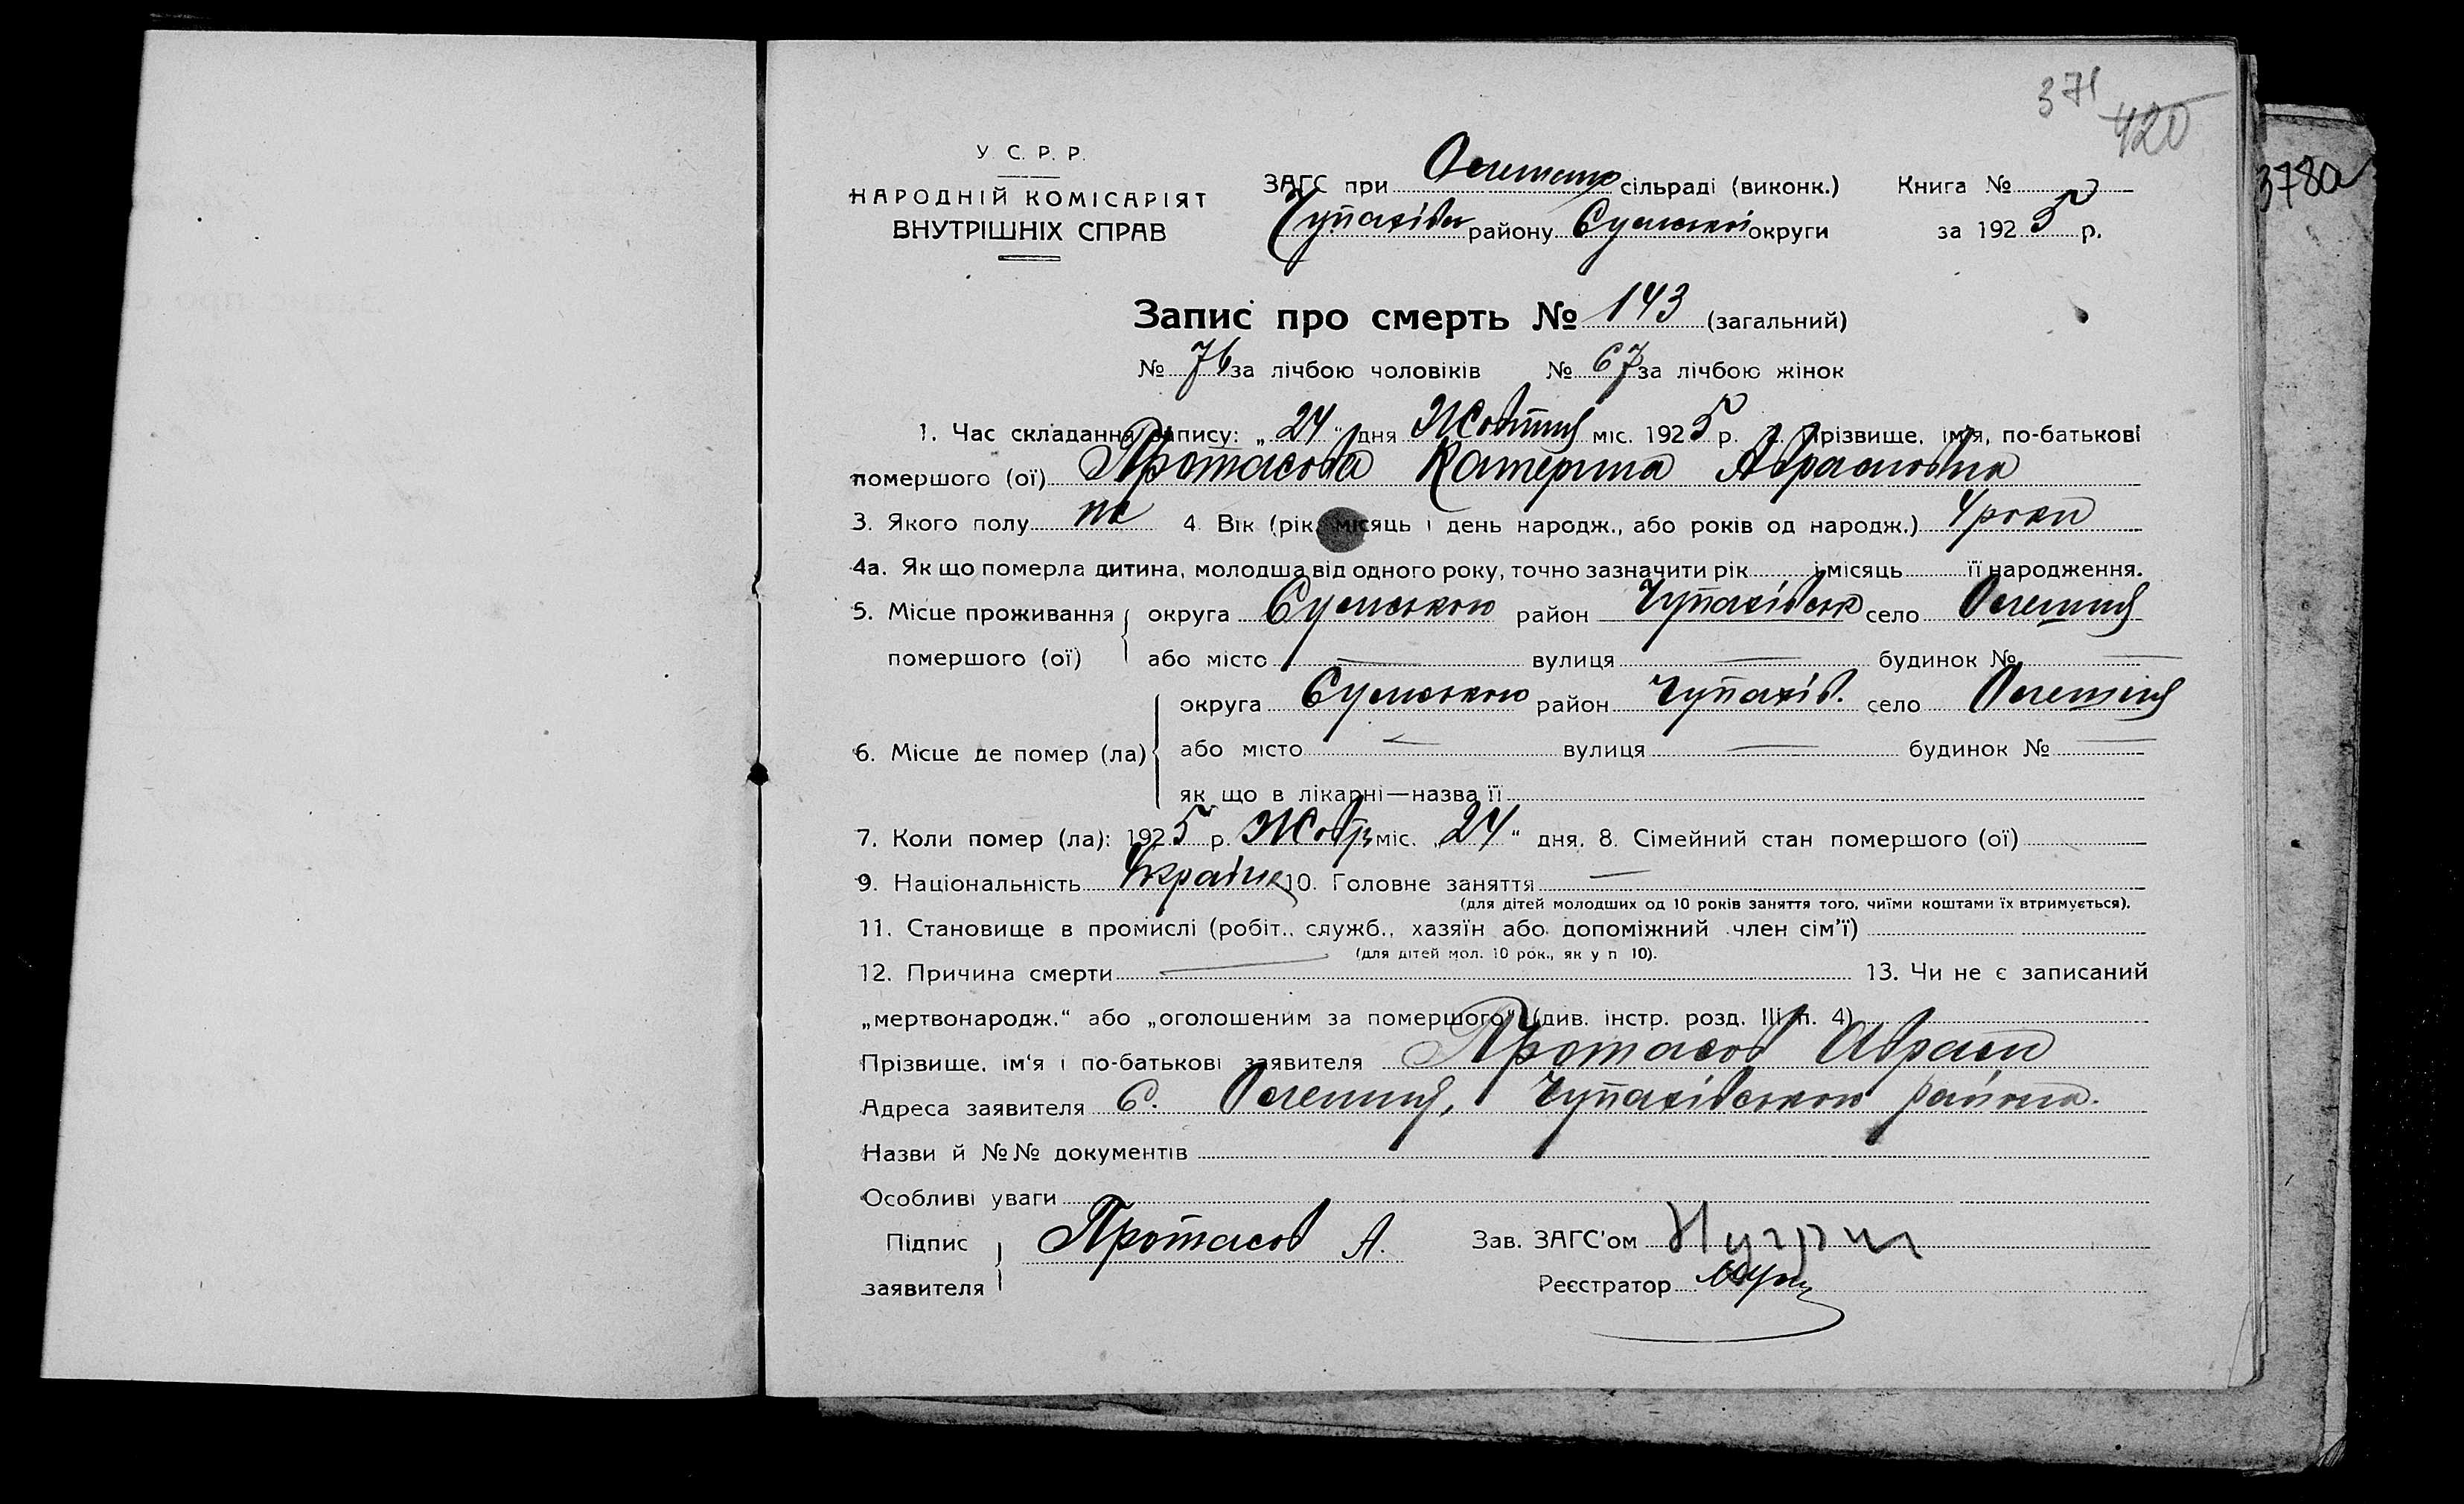 371
420
378а
У. С. Р. Р.
НАРОДНІЙ КОМІСАРІЯТ
ВНУТРІШНІХ СПРАВ
ЗАГС при сільраді (виконк.) Книга №
Чупахівськ району Сумської округи за 1925 р.
Запис про смерть № 143 (загальний)
№ 76 за лічбою чоловіків № 67 за лічбою жінок
1. Час складання запису: „24“ дня Жовтня міс. 1925 р. 2. Прізвище, ім'я, по-батькові
помершого (ої) Протасова Катерина Абрамовна
3. Якого полу ж 4. Вік (рік, місяць і день народж., або років од народж.) 4 роки
4а. Як що померла дитина, молодша від одного року, точно зазначити рік і місяць її народження.
5. Місце проживання округа Сумською район Чупахівськ село Олешня
помершого (ої) або місто — вулиця — будинок № —
округа Сумською район Чупахів. село Олешня
6. Місце де помер (ла) або місто — вулиця — будинок № —
як що в лікарні—назва її
7. Коли помер (ла): 1925 р. Жовт міс. „24“ дня. 8. Сімейний стан помершого (ої)
9. Національність Україн 10. Головне заняття —
(для дітей молодших од 10 років заняття того, чиїми коштами їх втримується).
11. Становище в промислі (робіт., служб., хазяїн або допоміжний член сім'ї)
(для дітей мол. 10 рок., як у п 10).
12. Причина смерти — 13. Чи не є записаний
„мертвонародж.“ або „оголошеним за помершого“ (див. інстр. розд. III п. 4)
Прізвище, ім'я і по-батькові заявителя Протасов Абрам
Адреса заявителя С. Олешня, Чупахівською района.
Назви й №№ документів
Особливі уваги
Підпис заявителя Протасов А. Зав. ЗАГС'ом
Реєстратор